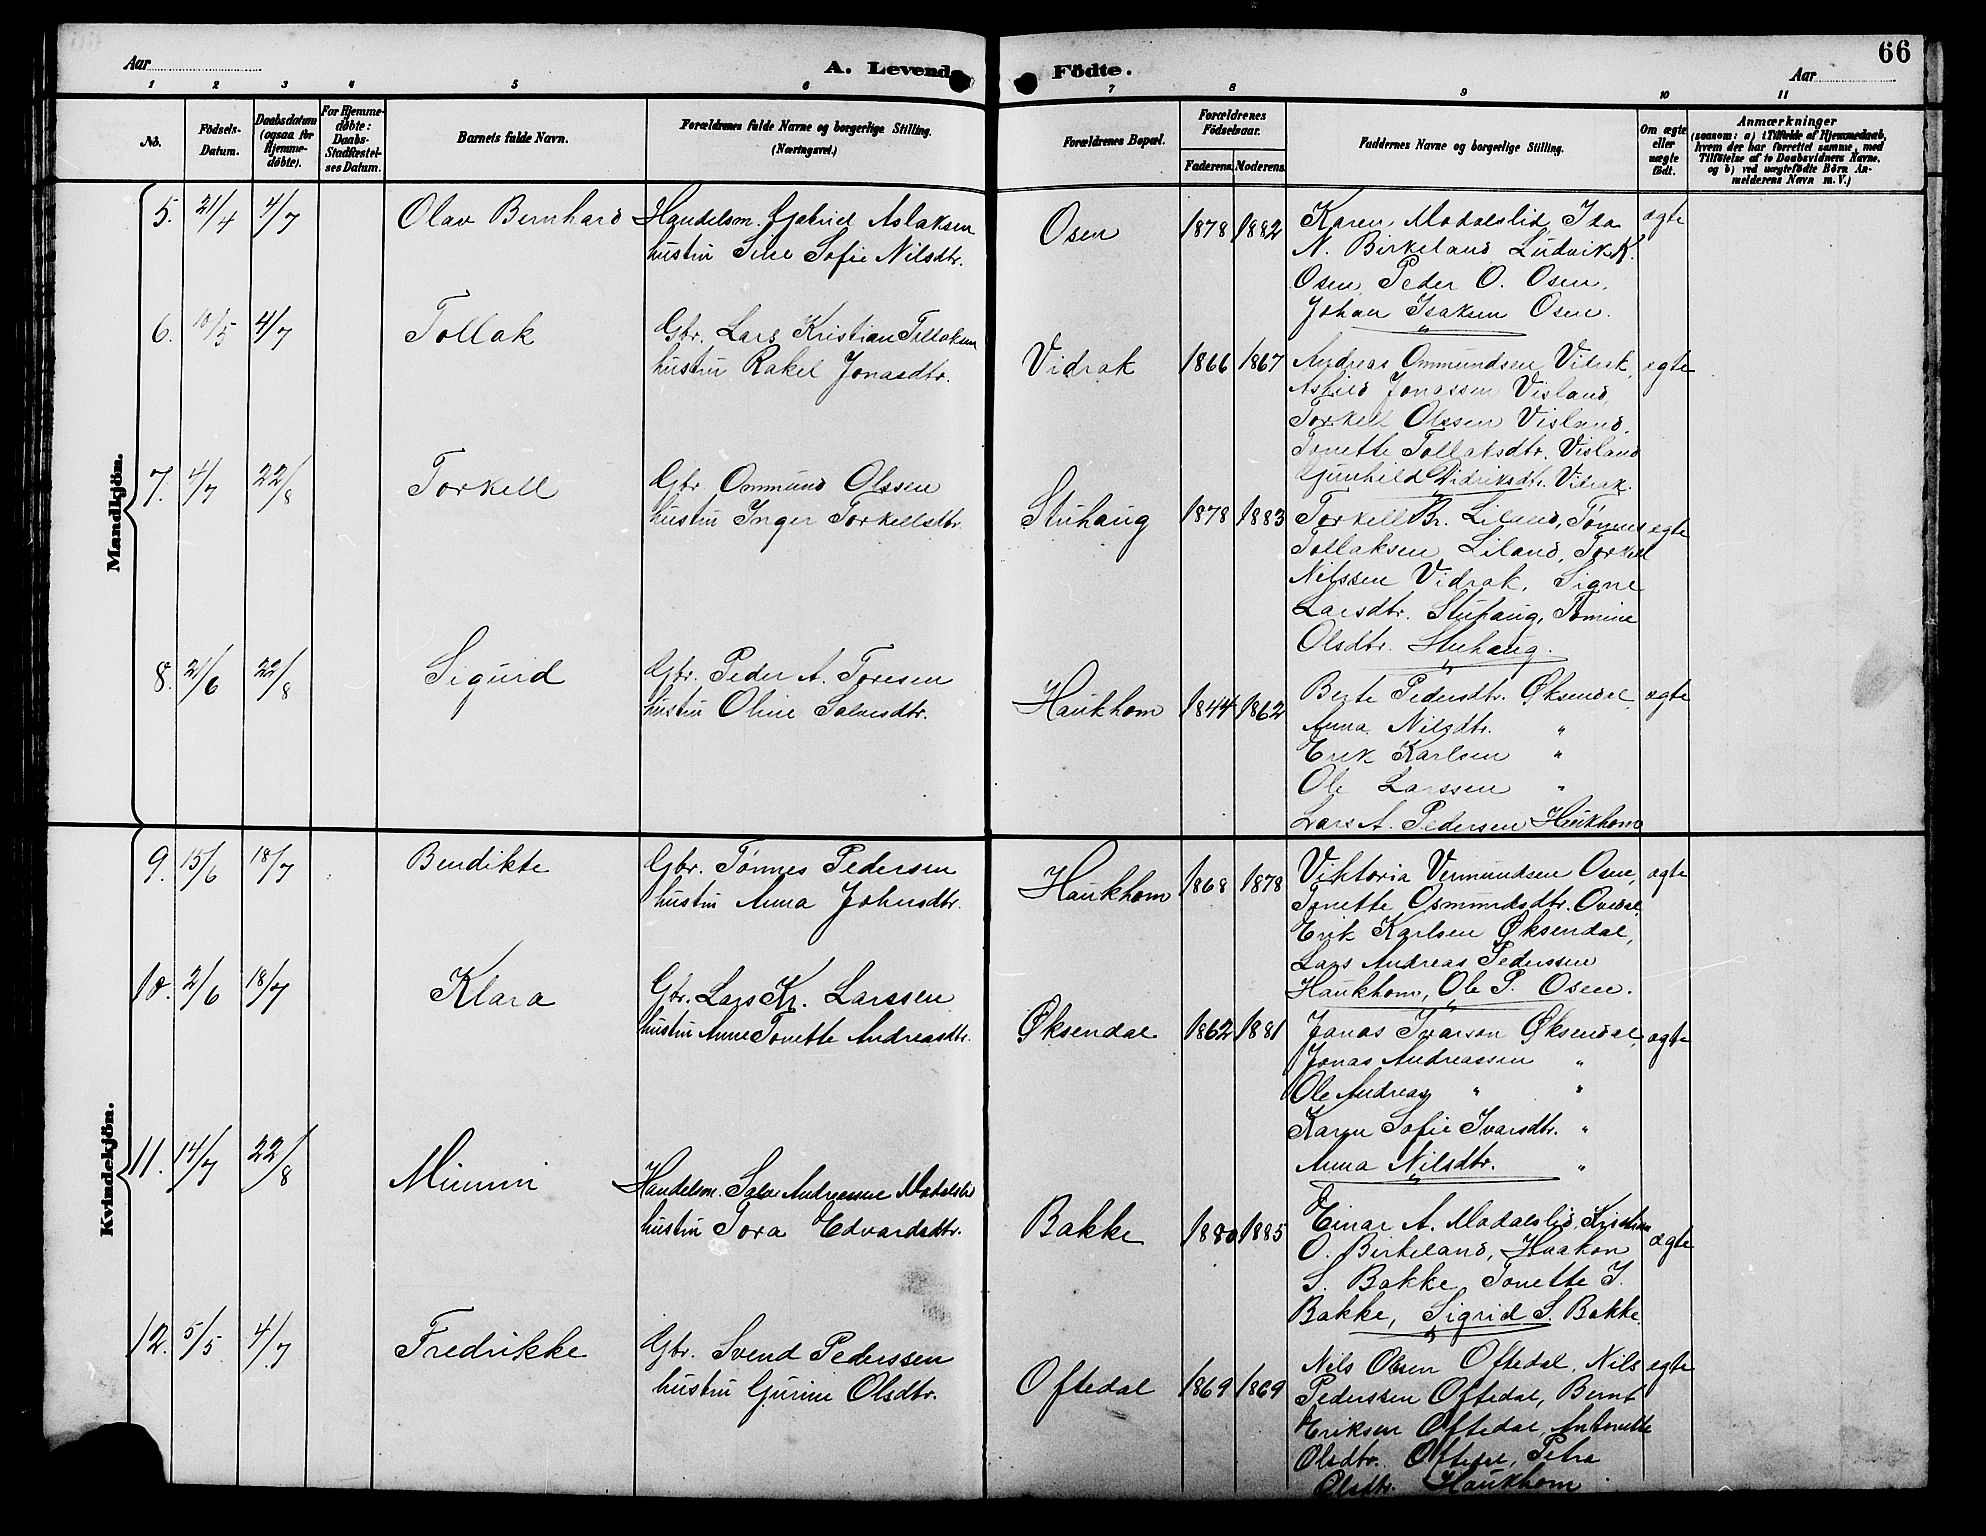 66
Aar
A. Levende Födte.
Aar
1 2 3 4 5 6 7 8 9 10 11
No.
Födsels-Datum.
Daabsdatum (ogsaa for Hjemme-döbte).
For Hjemme-döbte: Daabs-Stadfæstel-ses Datum.
Barnets fulde Navn.
Forældrenes fulde Navne og borgerlige Stilling. (Næringsvei.)
Forældrenes Bopæl.
Forældrenes Födselsaar.
Faderens. Moderens.
Faddernes Navne og borgerlige Stilling.
Om ægte eller uægte födt.
Anmærkninger
(saasom: a) i Tilfælde af Hjemmedaab, hvem der har forrettet samme, med Tilföielse af to Daabsvidners Navne, og b) ved uægtefödte Börn An-melderens Navn m. V.)
Mandkjön.
5. 21/4 4/7 Olav Bernhard
Handelsm. Gabriel Aslaksen
hustru Sine Sofie Nilsdtr.
Osen 1878 1882
Karen Modalslid, Ida
N. Birkeland, Ludvik K.
Osen, Peder O. Osen,
Johan Isaksen Osen.
ægte
6. 10/5 4/7 Tollak
Gbr. Lars Kristian Tollaksen
hustru Rakel Jonasdtr.
Vidrak 1866 1867
Andreas Ommundsen Vidrak,
Jonassen Visland,
Torkell Olssen Visland,
Tonette Tollaksdtr. Visland
Gunhild Didriksdtr. Vidrak.
ægte
7. 4/7 22/8 Torkell
Gbr. Ommund Olssen
hustru Inger Torkellsdtr.
Stuhaug 1878 1883
Torkell Br. Liland, Tønnes
Tollaksen Liland, Torkell
Nilssen Vidrak, Signe
Larsdtr. Stuhaug, Tomine
Olsdtr. Stuhaug.
ægte
8. 21/6 22/8 Sigurd
Gbr. Peder A. Toresen
hustru Oline Salvesdtr.
Haukhom 1844 1862
Berte Pedersdtr. Øksendal,
Anna Nilsdtr. "
Erik Karlsen "
Ole Larssen "
Lars A. Pedersen Haukhom
ægte
Kvindekjön.
9. 15/6 18/7 Bendikte
Gbr. Tønnes Pedersen
hustru Anna Johnsdtr.
Haukhom 1868 1878
Viktoria Vermundsen Osen,
Tonette Osmundsdtr. Ovedal,
Erik Karlsen Øksendal,
Lars Andreas Pederssen
Haukhom, Ole P. Osen.
ægte
10. 2/6 18/7 Klara
Gbr. Lars Kr. Larssen
hustru Anne Tonette Andreasdtr.
Øksendal 1862 1881
Jonas Ivarson Øksendal,
Jonas Andreassen "
Ole Andreas " "
Karen Sofie Ivarsdtr. "
Anna Nilsdtr. "
ægte
11. 14/7 22/8 Mimmi
Handelsm. Salve Andreassen Modalslid
hustru Tora Edvardsdtr.
Bakke 1880 1885
Einar A. Modalslid, Kristian
O. Birkeland, Haakon
S. Bakke, Tonette I.
Bakke, Sigrid S. Bakke.
ægte
12. 5/5 4/7 Fredrikke
Gbr. Svend Pederssen
hustru Gurine Olsdtr.
Oftedal 1869 1869
Nils Olsen Oftedal, Nils
Pederssen Oftedal, Bernt
Eriksen Oftedal, Antonette
Olsdtr. Oftedal, Petra
Olsdtr. Haukhom
ægte